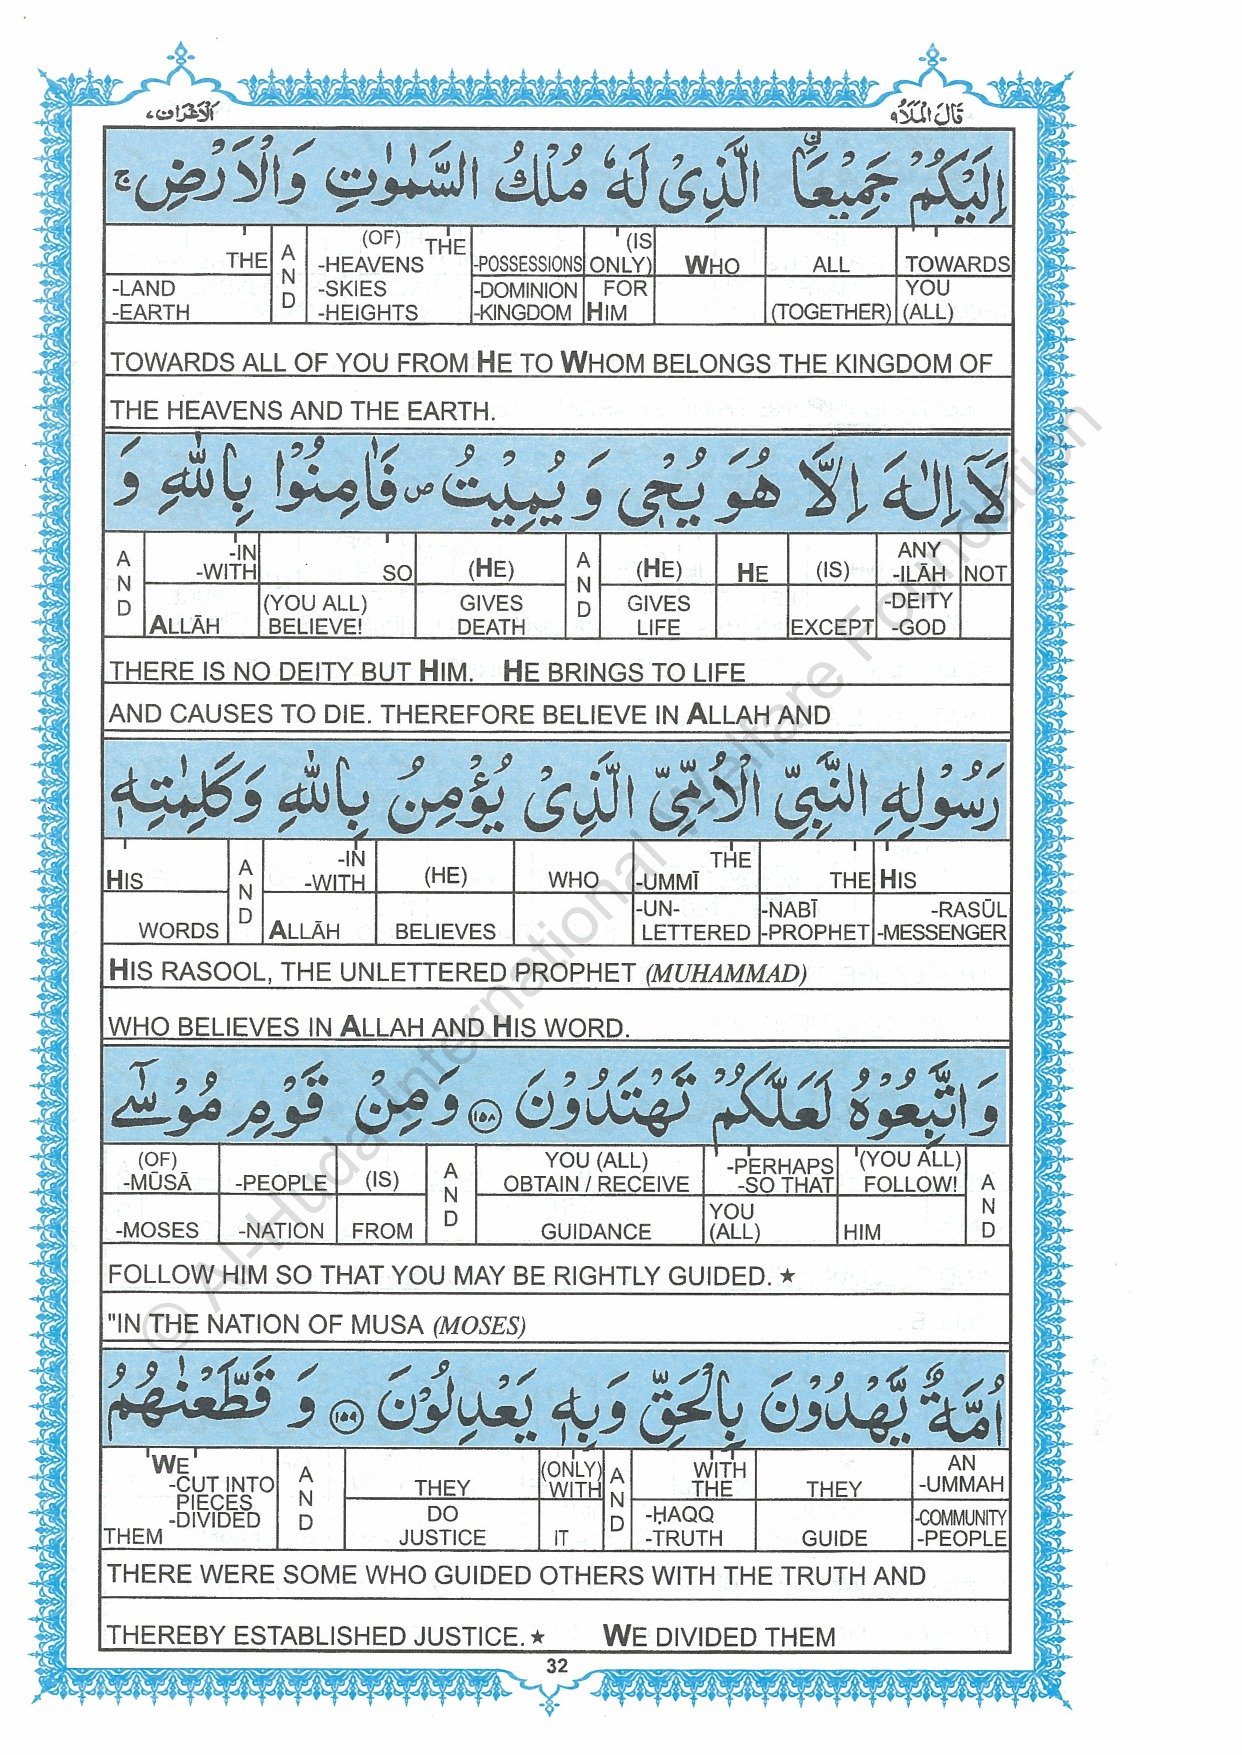 الاعراف ٧
قَالَ الْمَلَاُ ٩
اِلَيْكُمْ جَمِيْعَاۨ الَّذِىْ لَهٗ مُلْكُ السَّمٰوٰتِ وَالْاَرْضِ ۚ
THE AND (OF) THE (IS WHO ALL TOWARDS
-HEAVENS -POSSESSIONS ONLY)
-LAND -SKIES -DOMINION FOR YOU
-EARTH -HEIGHTS -KINGDOM HIM (TOGETHER) (ALL)
TOWARDS ALL OF YOU FROM HE TO WHOM BELONGS THE KINGDOM OF
THE HEAVENS AND THE EARTH.
لَآ اِلٰهَ اِلَّا هُوَ يُحْىٖ وَ يُمِيْتُ ۖ فَاٰمِنُوْا بِاللّٰهِ وَ
AND -IN SO (HE) AND (HE) HE (IS) ANY NOT
-WITH -ILĀH
(YOU ALL) GIVES GIVES -DEITY
ALLĀH BELIEVE! DEATH LIFE EXCEPT -GOD
THERE IS NO DEITY BUT HIM. HE BRINGS TO LIFE
AND CAUSES TO DIE. THEREFORE BELIEVE IN ALLAH AND
رَسُوْلِهِ النَّبِىِّ الْاُمِّىِّ الَّذِىْ يُؤْمِنُ بِاللّٰهِ وَكَلِمٰتِهٖ
HIS AND -IN (HE) WHO THE THE HIS
-WITH -UMMĪ
-UN- -NABĪ -RASŪL
WORDS ALLĀH BELIEVES LETTERED -PROPHET -MESSENGER
HIS RASOOL, THE UNLETTERED PROPHET (MUHAMMAD)
WHO BELIEVES IN ALLAH AND HIS WORD.
وَاتَّبِعُوْهُ لَعَلَّكُمْ تَهْتَدُوْنَ ﴿١٥٨﴾ وَمِنْ قَوْمِ مُوْسٰٓى
(OF) -PEOPLE (IS) AND YOU (ALL) -PERHAPS (YOU ALL) AND
-MŪSĀ OBTAIN / RECEIVE -SO THAT FOLLOW!
YOU
-MOSES -NATION FROM GUIDANCE (ALL) HIM
FOLLOW HIM SO THAT YOU MAY BE RIGHTLY GUIDED. ★
"IN THE NATION OF MUSA (MOSES)
اُمَّةٌ يَّهْدُوْنَ بِالْحَقِّ وَبِهٖ يَعْدِلُوْنَ ﴿١٥٩﴾ وَ قَطَّعْنٰهُمُ
WE AND THEY (ONLY) AND WITH THEY AN
-CUT INTO WITH THE -UMMAH
PIECES DO -ḤAQQ -COMMUNITY
-DIVIDED JUSTICE IT -TRUTH GUIDE -PEOPLE
THEM
THERE WERE SOME WHO GUIDED OTHERS WITH THE TRUTH AND
THEREBY ESTABLISHED JUSTICE. ★ WE DIVIDED THEM
32
© Al-Huda International Welfare Foundation